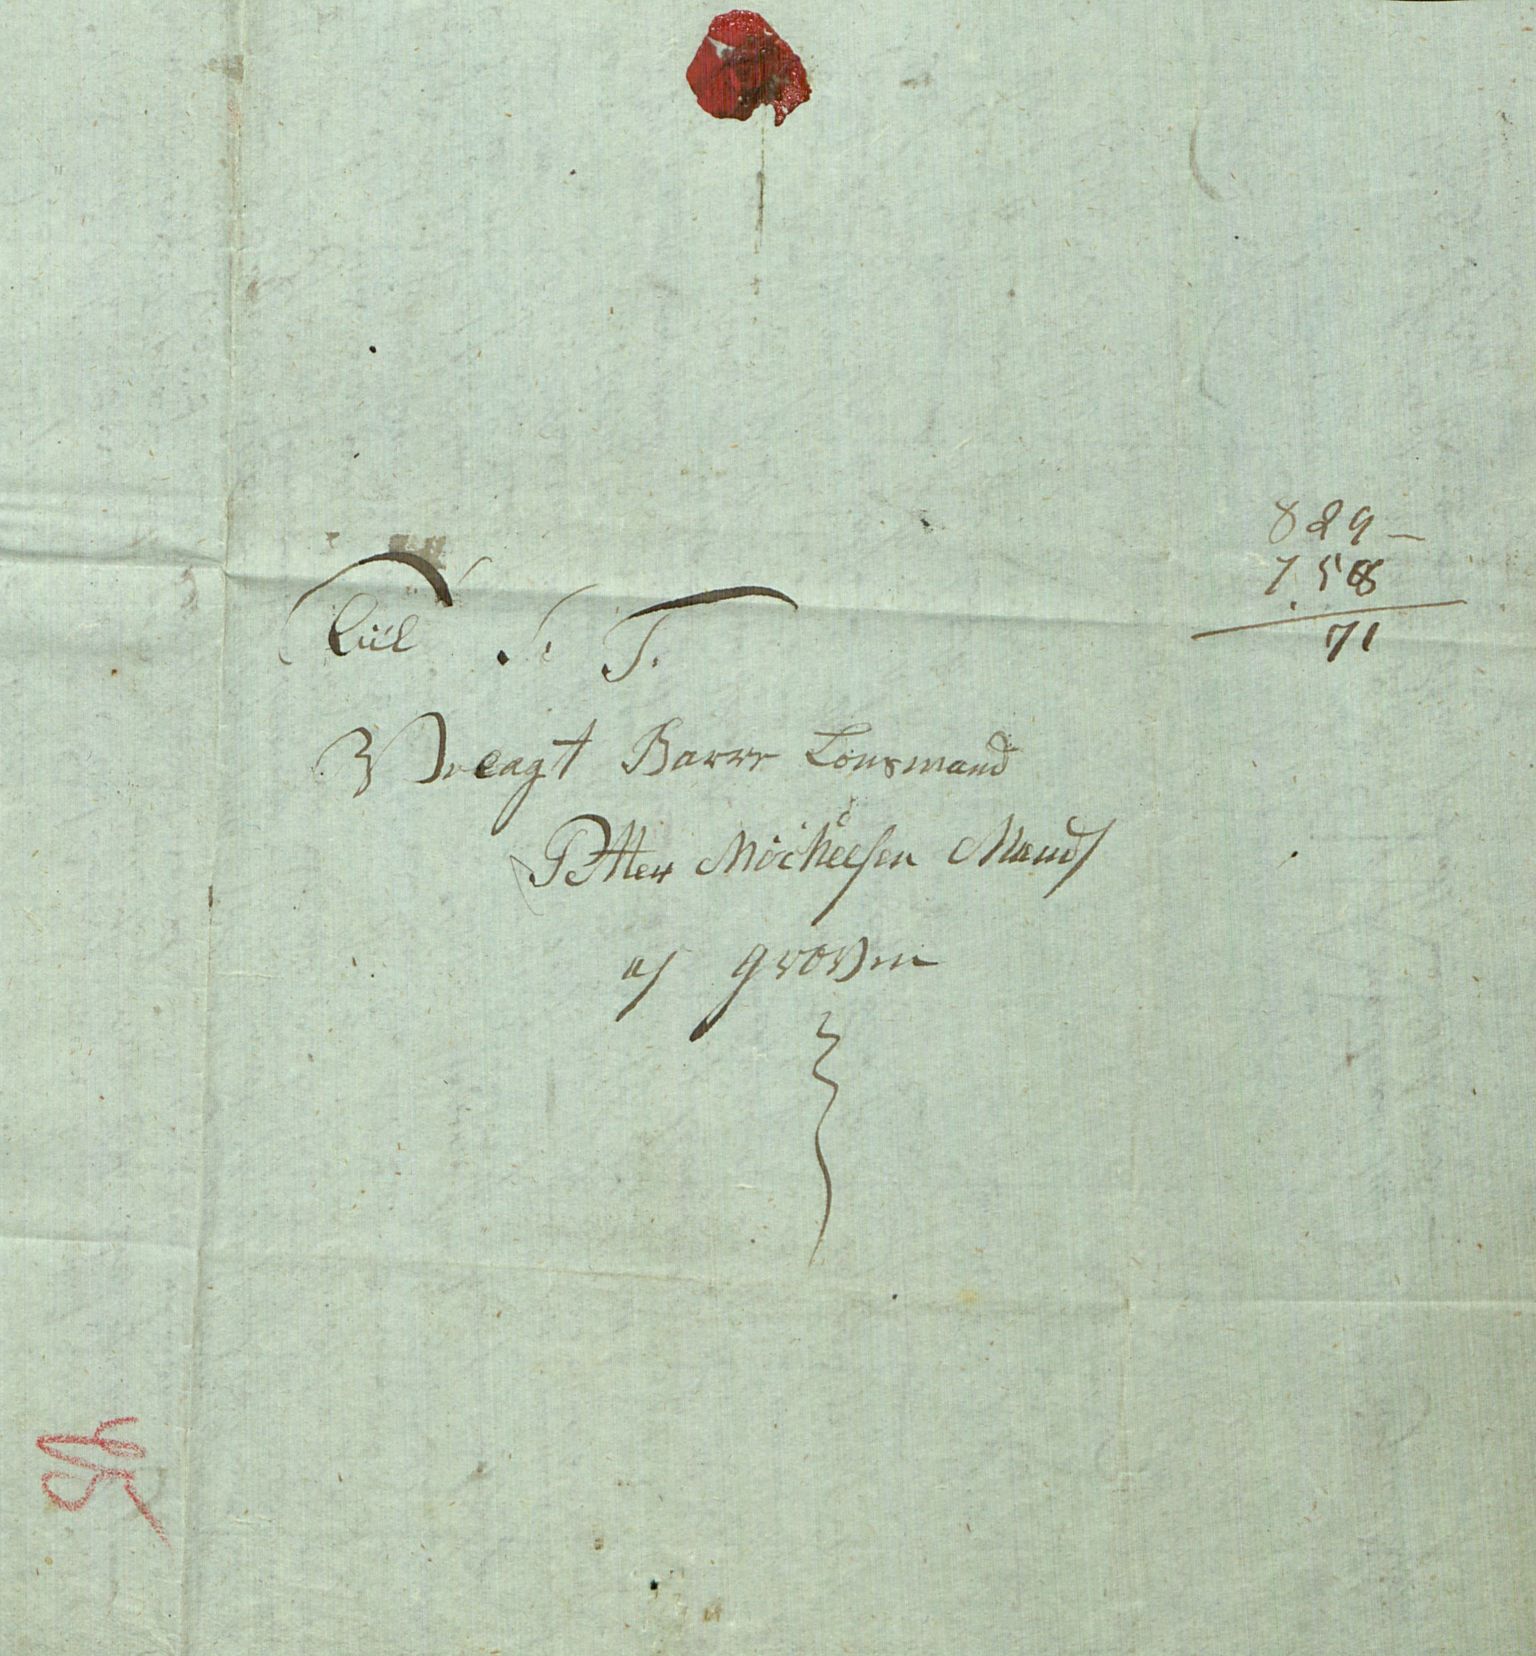 829 –
758
71
Tiil S. T.
Velagt Herr Lensmand
Petter Michelsen Mand
af groven